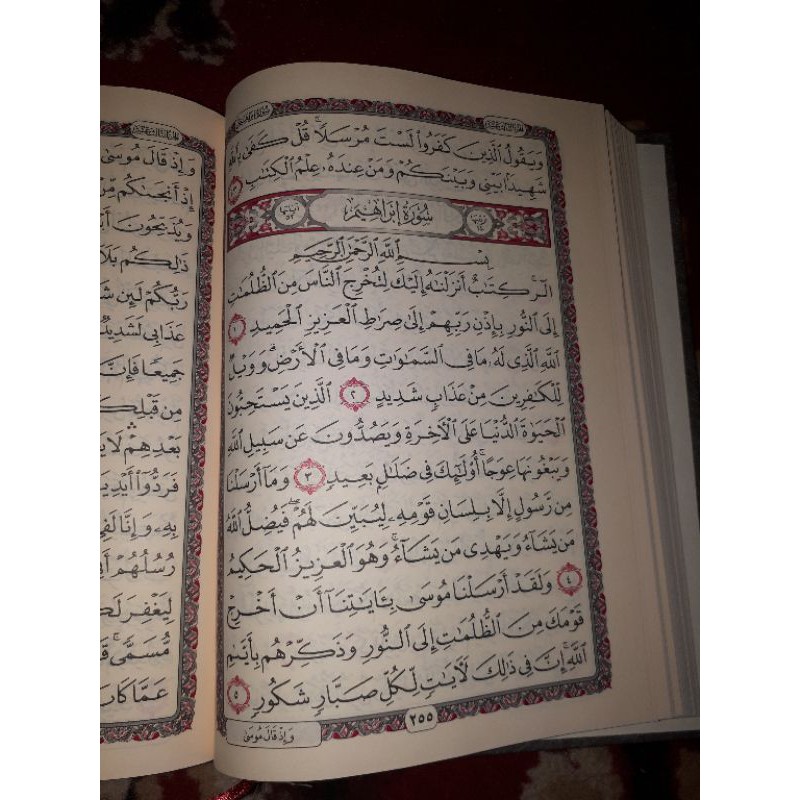 وَيَقُولُ ٱلَّذِينَ كَفَرُوا۟ لَسْتَ مُرْسَلًا ۚ قُلْ كَفَىٰ بِٱللَّهِ
شَهِيدًۢا بَيْنِى وَبَيْنَكُمْ وَمَنْ عِندَهُۥ عِلْمُ ٱلْكِتَٰبِ
سُورَةُ إِبْرَاهِيمَ
بِسْمِ ٱللَّهِ ٱلرَّحْمَٰنِ ٱلرَّحِيمِ
الٓر ۚ كِتَٰبٌ أَنزَلْنَٰهُ إِلَيْكَ لِتُخْرِجَ ٱلنَّاسَ مِنَ ٱلظُّلُمَٰتِ
إِلَى ٱلنُّورِ بِإِذْنِ رَبِّهِمْ إِلَىٰ صِرَٰطِ ٱلْعَزِيزِ ٱلْحَمِيدِ ١
ٱللَّهِ ٱلَّذِى لَهُۥ مَا فِى ٱلسَّمَٰوَٰتِ وَمَا فِى ٱلْأَرْضِ ۗ وَوَيْلٌ
لِّلْكَٰفِرِينَ مِنْ عَذَابٍ شَدِيدٍ ٢ ٱلَّذِينَ يَسْتَحِبُّونَ
ٱلْحَيَوٰةَ ٱلدُّنْيَا عَلَى ٱلْأَخِرَةِ وَيَصُدُّونَ عَن سَبِيلِ ٱللَّهِ
وَيَبْغُونَهَا عِوَجًا ۚ أُو۟لَٰٓئِكَ فِى ضَلَٰلٍۭ بَعِيدٍ ٣ وَمَآ أَرْسَلْنَا
مِن رَّسُولٍ إِلَّا بِلِسَانِ قَوْمِهِۦ لِيُبَيِّنَ لَهُمْ ۖ فَيُضِلُّ ٱللَّهُ
مَن يَشَآءُ وَيَهْدِى مَن يَشَآءُ ۚ وَهُوَ ٱلْعَزِيزُ ٱلْحَكِيمُ
٤ وَلَقَدْ أَرْسَلْنَا مُوسَىٰ بِـَٔايَٰتِنَآ أَنْ أَخْرِجْ
قَوْمَكَ مِنَ ٱلظُّلُمَٰتِ إِلَى ٱلنُّورِ وَذَكِّرْهُم بِأَيَّىٰمِ
ٱللَّهِ ۚ إِنَّ فِى ذَٰلِكَ لَأَيَٰتٍ لِّكُلِّ صَبَّارٍ شَكُورٍ ٥
وَإِذْ قَالَ مُوسَىٰ
٢٥٥
وَإِذْ قَالَ مُوسَىٰ
إِذْ أَنجَىٰكُم مِّنْ
وَيُذَبِّحُونَ
ذَٰلِكُم
رَبُّكُمْ لَئِن
عَذَابِى لَشَدِيدٌ
جَمِيعًا فَإِنَّ
مِن قَبْلِكُمْ
بَعْدِهِمْ لَا
فَرَدُّوٓا۟
بِهِۦ وَإِنَّا
رُسُلُهُمْ
لِيَغْفِرَ
مُّسَمًّى ۚ
عَمَّا كَانَ